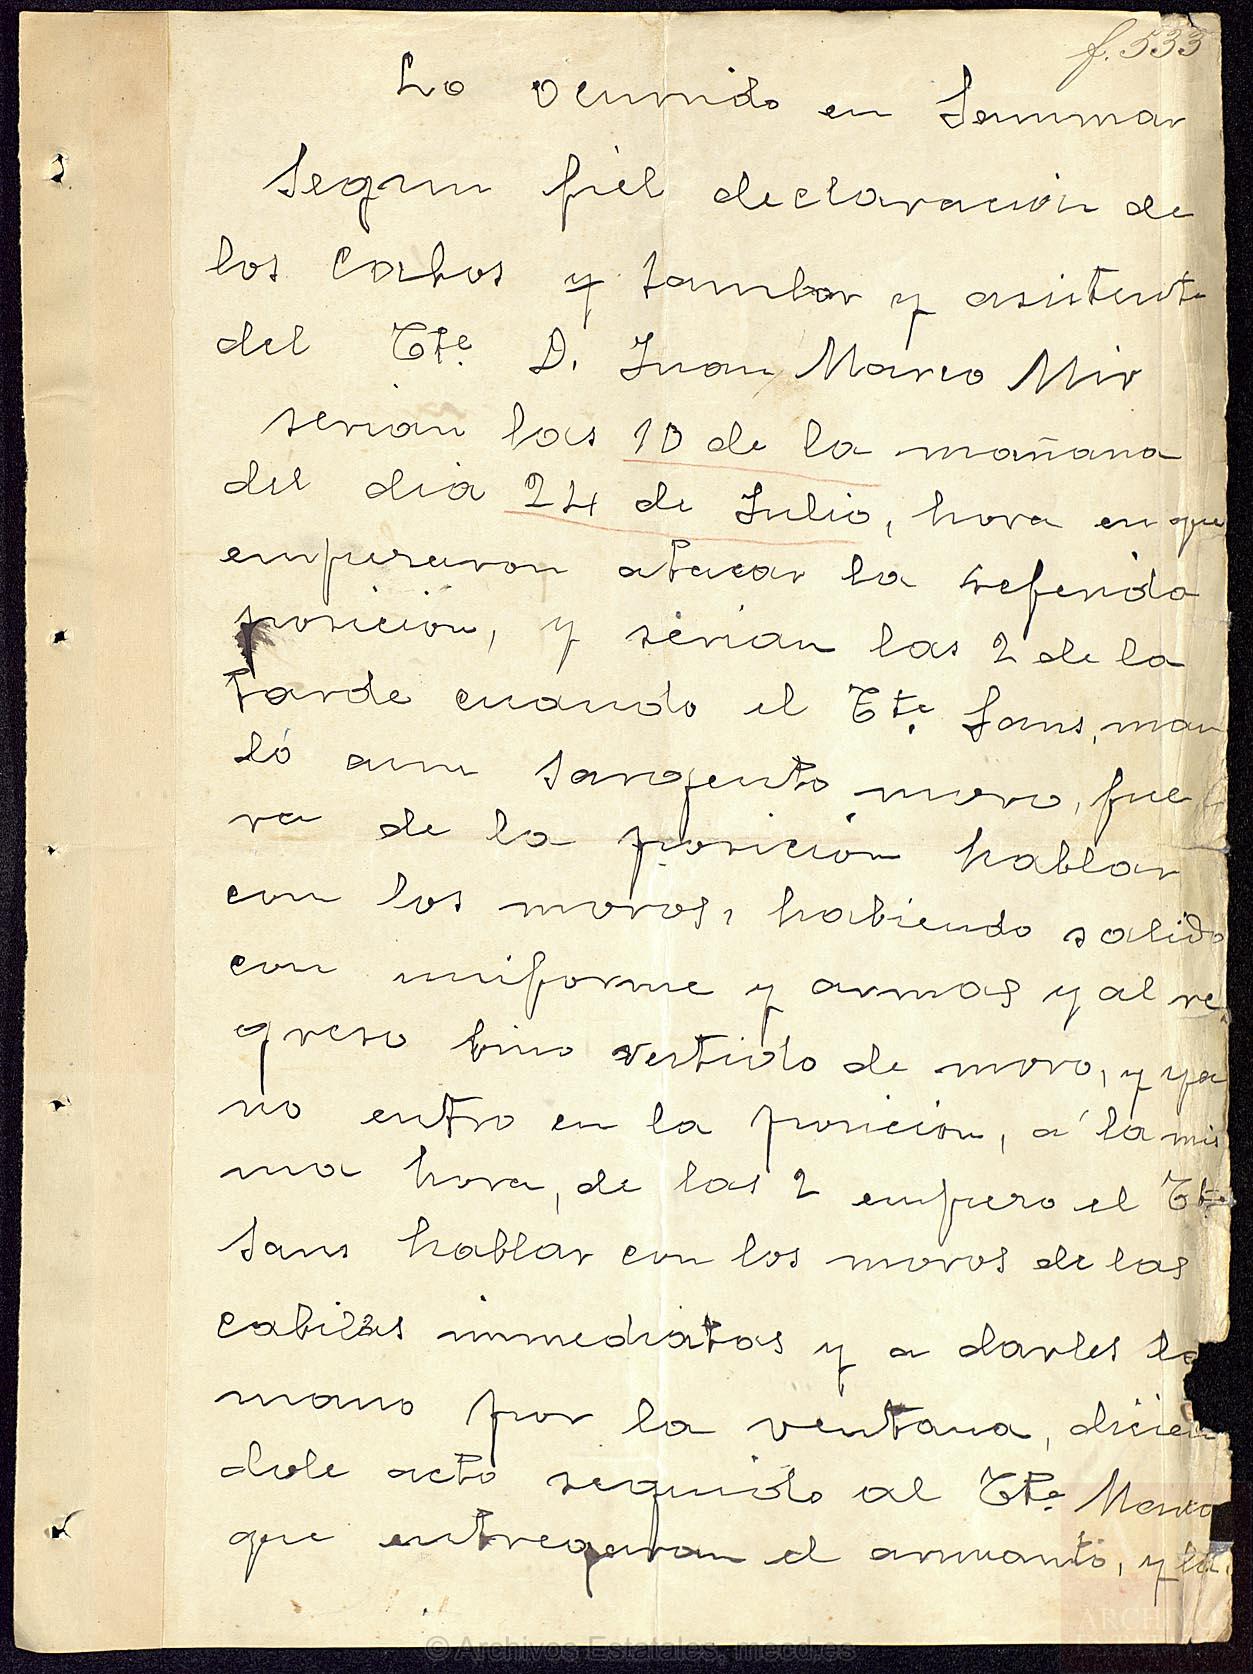 f. 533
Lo ocurrido en Sammar
Segun fiel declaración de
los Cabos y tambor y asistente
del Tte. D. Juan Marco Mir
serian las 10 de la mañana
del dia 24 de Julio, hora en que
empezaron atacar la referida
posición, y serian las 2 de la
tarde cuando el Tte. Sans, man
dó aun Sargento moro, fue
ra de la posición hablar
con los moros, habiendo salido
con uniforme y armas y al re
greso bino vestido de moro, y ya
no entro en la posición, a la mis
ma hora, de las 2 empezo el Tte
Sans hablar con los moros de las
cabilas inmediatas y a darles la
mano por la ventana, dicien
dole acto seguido al Tte. Marco
que entregaran el armamto, y
© Archivos Estatales, mecd.es
ARCHIVOS
ESTATALES